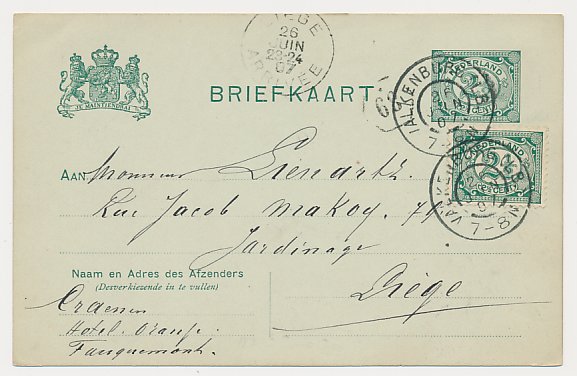 LIEGE
26
JUIN
23-24
07
ARRIVEE
NEDERLAND
2½
CENT
JE MAINTIENDRAI
BRIEFKAART.
VALKENBURG
7-8N
NEDERLAND
2½
CENT
VALKENBURG
7-8N
AAN Monsieur Lienartz
Rue Jacob Makoy. 79
Jardinage
Liège
Naam en Adres des Afzenders
(Desverkiezende in te vullen)
Hotel Oranje.
Fauquemont.